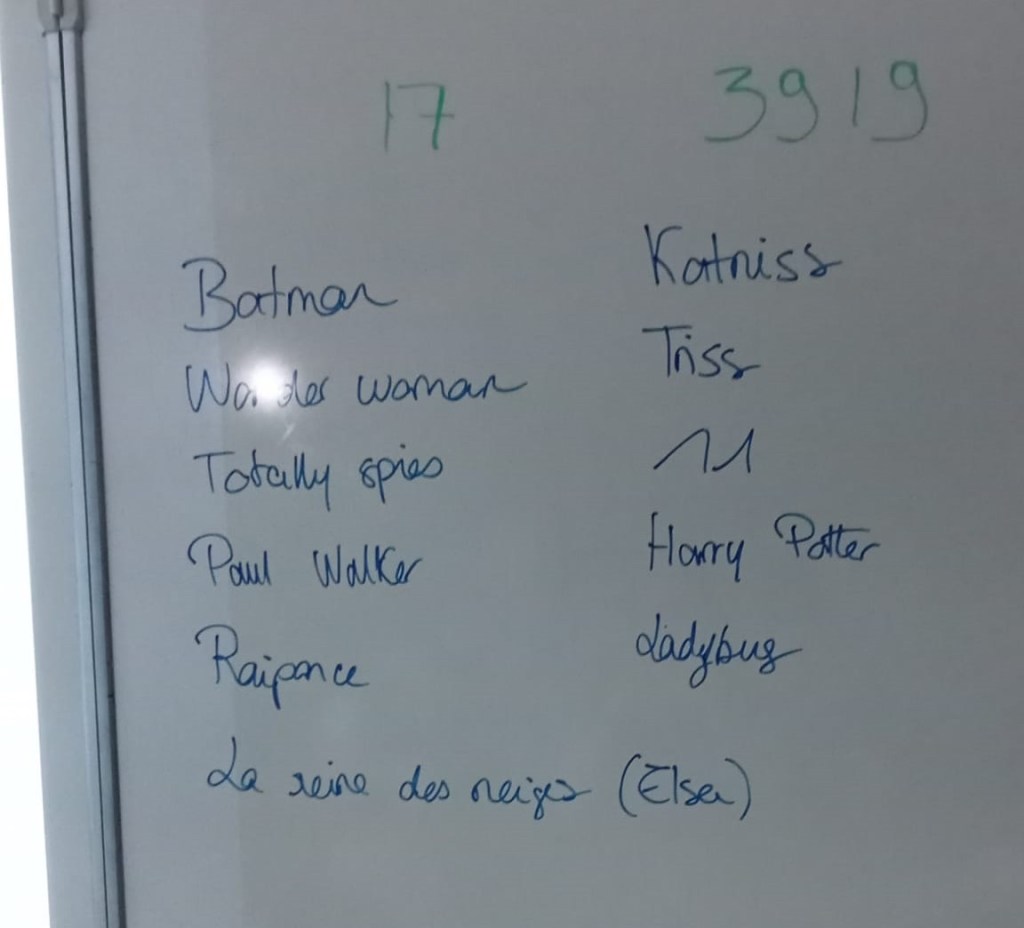 17
3919
Batman
Wonder woman
Totally spies
Paul Walker
Raiponce
La reine des neiges (Elsa)
Katniss
Triss
11
Harry Potter
Ladybug